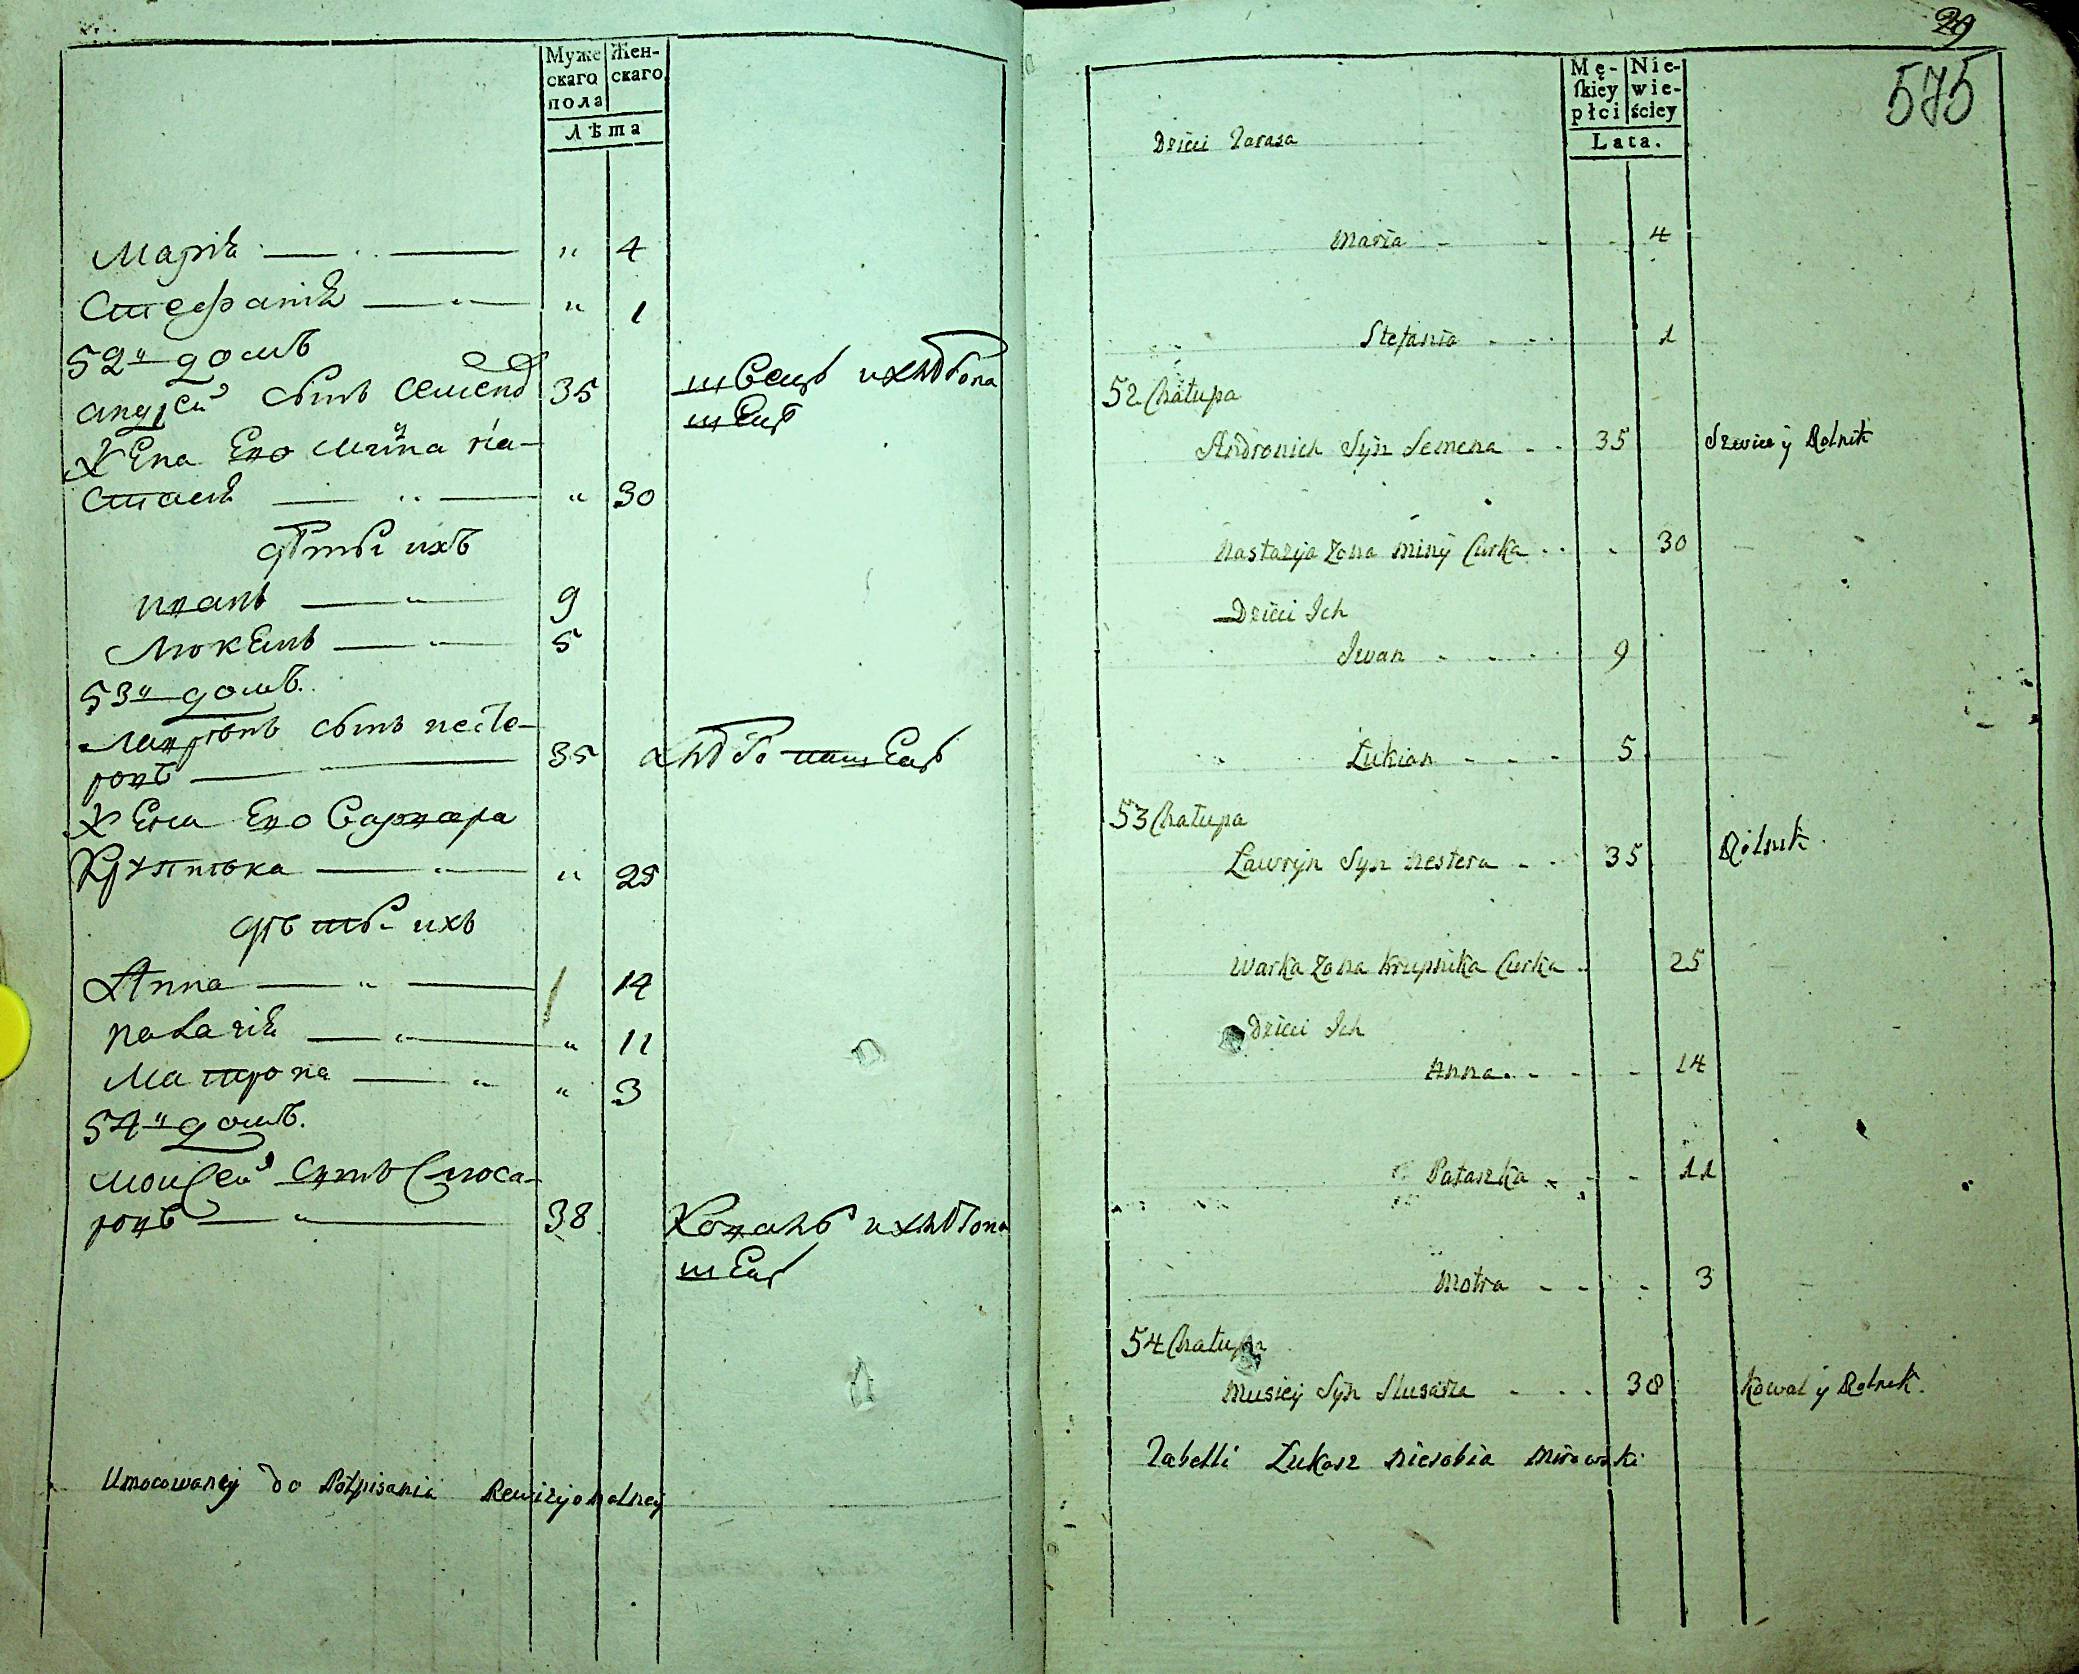 Муже Жен-
скаго скаго
пола
Лѣта
Марія " 4
Стефанія " 1
52й домъ
Андрей сынъ Семена 35 швецъ и хлѣбопа
шецъ
Жена Его Мины На-
стасія " 30
Дѣти ихъ
Иванъ 9
Люкянъ 5
53й домъ.
Лаврѣнъ сынъ Несте-
ровъ 35 хлѣбопашецъ
Жена Его Варвара
Крупнѣка " 25
Дѣти ихъ
Анна 14
Палазія " 11
Матрона " 3
54й домъ.
Моисей сынъ Слюса-
ровъ 38 Коваль и хлѣбопа
шецъ
Umocowanej do Potpisania Rewizyonalney
29
575
Mę- Nie-
ſkiey wie-
płci ściey
Lata.
Dzieci Tarasa
Maria 4
Stefania 1
52 Chałupa
Andronich Syn Semena 35 Szwiec y Rolnik
Nastazya Zona Miny Curka 30
Dzieci Ich
Iwan 9
Łukian 5
53 Chałupa
Ławryn Syn Nestera 35 Rolnik
Warka Zona Krupnika Curka 25
Dzieci Ich
Anna 14
Pałaszka 11
Motra 3
54 Chałupa
Musiey Syn Slusarza 38 Kowal y Rolnik.
Tabelli Łukasz Nierobia Mirowski